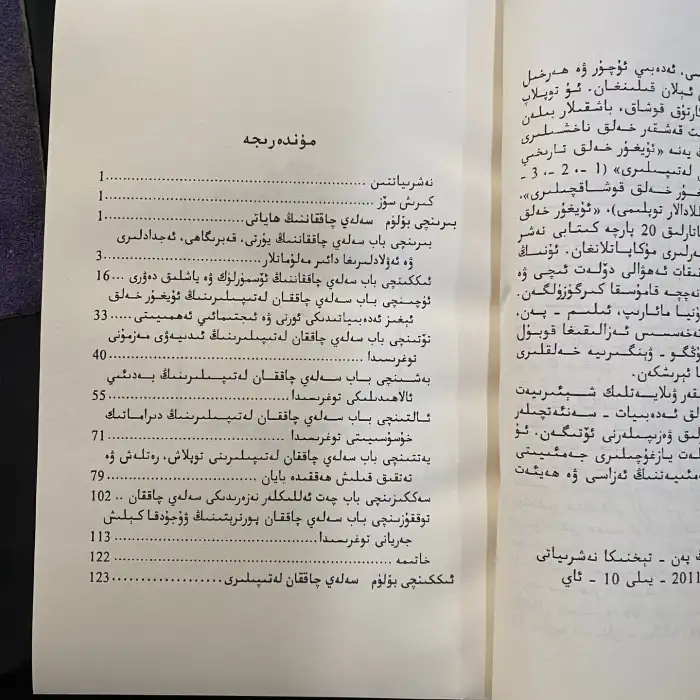 مۇندەرىجە
نەشرىياتتىن ........................................ 1
كىرىش سۆز ........................................ 1
بىرىنچى بۆلۈم سەلەي چاققاننىڭ ھاياتى .................... 1
بىرىنچى باب سەلەي چاققاننىڭ يۇرتى، قەبرىگاھى، ئەجدادلىرى
ۋە ئەۋلادلىرىغا دائىر مەلۇماتلار .................... 3
ئىككىنچى باب سەلەي چاققاننىڭ ئۆسمۈرلۈك ۋە ياشلىق دەۋرى ... 16
ئۈچىنچى باب سەلەي چاققان لەتىپىلىرىنىڭ ئۇيغۇر خەلق
ئېغىز ئەدەبىياتىدىكى ئورنى ۋە ئىجتىمائىي ئەھمىيىتى ........ 33
تۆتىنچى باب سەلەي چاققان لەتىپىلىرىنىڭ ئىدىيەۋى مەزمۇنى
توغرىسىدا ........................................ 40
بەشىنچى باب سەلەي چاققان لەتىپىلىرىنىڭ بەدىئىي
ئالاھىدىلىكى توغرىسىدا .............................. 55
ئالتىنچى باب سەلەي چاققان لەتىپىلىرىنىڭ دىراماتىك
خۇسۇسىيىتى توغرىسىدا .............................. 71
يەتتىنچى باب سەلەي چاققان لەتىپىلىرىنى توپلاش، رەتلەش ۋە
تەتقىق قىلىش ھەققىدە بايان .......................... 79
سەككىزىنچى باب چەت ئەللىكلەر نەزەرىدىكى سەلەي چاققان .. 102
توققۇزىنچى باب سەلەي چاققان پورترېتىنىڭ ۋۇجۇدقا كېلىش
جەريانى توغرىسىدا .............................. 113
خاتىمە ........................................ 122
ئىككىنچى بۆلۈم سەلەي چاققان لەتىپىلىرى .................... 123
سى، ئەدەبىي ئۇچۇر ۋە ھەرخىل
ئېلان قىلىنغان. ئۇ توپلاپ
ئارتۇق قوشاق، باشقىلار بىلەن
قەشقەر خەلق ناخشىلىرى
يەنە «ئۇيغۇر خەلق تارىخىي
لەتىپىلىرى» (1 -، 2 -، 3 -
خەلق قوشاقچىلىرى»،
توپلىمى)، «ئۇيغۇر خەلق
قاتارلىق 20 پارچە كىتابى نەشر
مۇكاپاتلانغان. ئۇنىڭ
ئەھۋالى دۆلەت ئىچى ۋە
نەچچە قامۇسقا كىرگۈزۈلگەن.
مائارىپ، ئىلىم - پەن،
ئەزالىقىغا قوبۇل
ۋېنگىرىيە خەلقلىرى
ئېرىشكەن.
ۋىلايەتلىك شېئىرىيەت
ئەدەبىيات - سەنئەتچىلەر
ۋەزىپىلەرنى ئۆتىگەن. ئۇ
يازغۇچىلىرى جەمئىيىتى
ئەزاسى ۋە ھەيئەت
پەن - تېخنىكا نەشرىياتى
2011 - يىلى 10 - ئاي